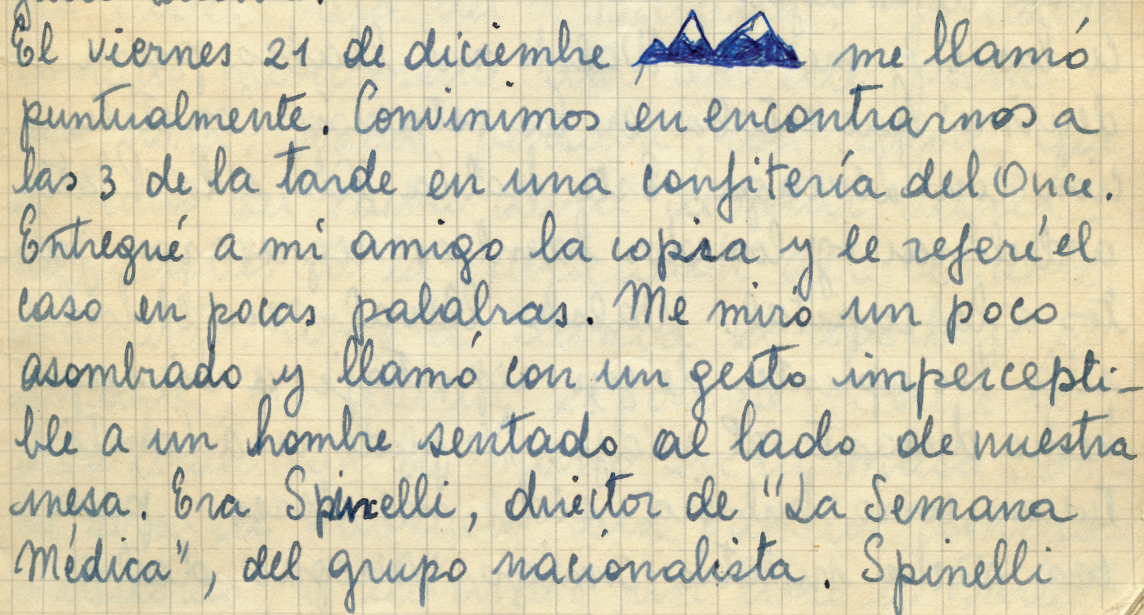 El viernes 21 de diciembre, me llamó
puntualmente. Convinimos en encontrarnos a
las 3 de la tarde en una confitería del Once.
Entregué a mi amigo la copia y le referí el
caso en pocas palabras. Me miró un poco
asombrado y llamó con un gesto impercepti-
ble a un hombre sentado al lado de nuestra
mesa. Era Spinelli, director de "La Semana
Médica", del grupo nacionalista. Spinelli